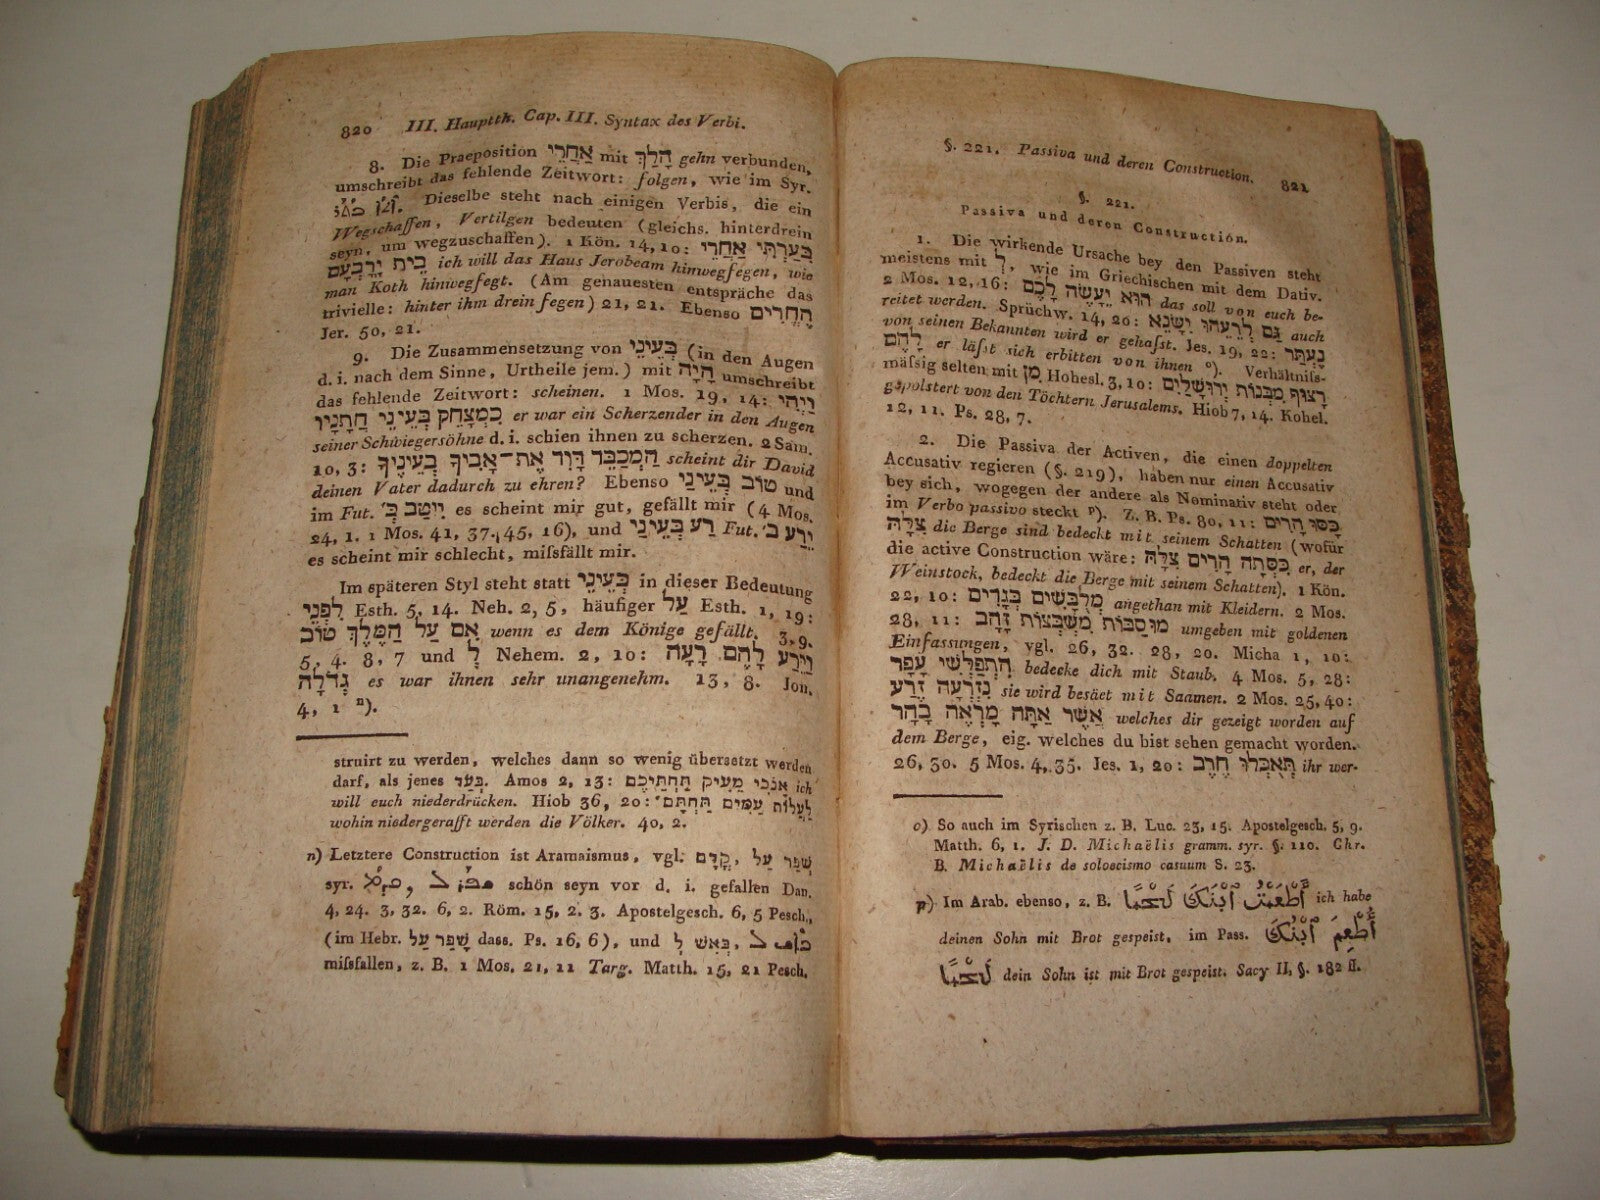 820 III. Hauptth. Cap. III. Syntax des Verbi.
8. Die Praeposition אַחֲרֵי mit הָלַךְ gehn verbunden,
umschreibt das fehlende Zeitwort: folgen, wie im Syr.
Dieselbe steht nach einigen Verbis, die ein
Wegschaffen, Vertilgen bedeuten (gleichs. hinterdrein
seyn, um wegzuschaffen). 1 Kön. 14, 10: בִּעַרְתִּי אַחֲרֵי
בֵית יָרָבְעָם ich will das Haus Jerobeam hinwegfegen, wie
man Koth hinwegfegt. (Am genauesten entspräche das
trivielle: hinter ihm drein fegen) 21, 21. Ebenso הֶחֱרִים
Jer. 50, 21.
9. Die Zusammensetzung von בְּעֵינֵי (in den Augen
d. i. nach dem Sinne, Urtheile jem.) mit הָיָה umschreibt
das fehlende Zeitwort: scheinen. 1 Mos. 19, 14: וַיְהִי
כִמְצַחֵק בְּעֵינֵי חֲתָנָיו er war ein Scherzender in den Augen
seiner Schwiegersöhne d. i. schien ihnen zu scherzen. 2 Sam.
10, 3: הַמְכַבֵּד דָּוִד אֶת־אָבִיךָ בְּעֵינֶיךָ scheint dir David
deinen Vater dadurch zu ehren? Ebenso טוֹב בְּעֵינַי und
im Fut. יִיטַב בְּ׳ es scheint mir gut, gefällt mir (4 Mos.
24, 1. 1 Mos. 41, 37. 45, 16), und רַע בְּעֵינַי Fut. יֵרַע ב׳
es scheint mir schlecht, miſsfällt mir.
Im späteren Styl steht statt בְּעֵינֵי in dieser Bedeutung
לִפְנֵי Esth. 5, 14. Neh. 2, 5, häufiger עַל Esth. 1, 19:
אִם עַל הַמֶּלֶךְ טוֹב wenn es dem Könige gefällt. 3, 9.
5, 4. 8, 7 und לְ Nehem. 2, 10: וַיֵּרַע לָהֶם רָעָה
גְדֹלָה es war ihnen sehr unangenehm. 13, 8. Jon.
4, 1 n).
struirt zu werden, welches dann so wenig übersetzt werden
darf, als jenes בְּעַד. Amos 2, 13: אָנֹכִי מֵעִיק תַּחְתֵּיכֶם ich
will euch niederdrücken. Hiob 36, 20: לַעֲלוֹת עַמִּים תַּחְתָּם
wohin niedergerafft werden die Völker. 40, 2.
n) Letztere Construction ist Aramaismus, vgl. שְׁפַר עַל, קֳדָם
syr. schön seyn vor d. i. gefallen Dan.
4, 24. 3, 32. 6, 2. Röm. 15, 2. 3. Apostelgesch. 6, 5 Pesch.,
(im Hebr. שָׁפַר עַל dass. Ps. 16, 6), und בְּאֵשׁ לְ,
miſsfallen, z. B. 1 Mos. 21, 11 Targ. Matth. 15, 21 Pesch.
§. 221. Passiva und deren Construction. 821
§. 221.
Passiva und deren Construction.
1. Die wirkende Ursache bey den Passiven steht
meistens mit לְ, wie im Griechischen mit dem Dativ.
2 Mos. 12, 16: הוּא יֵעָשֶׂה לָכֶם das soll von euch be-
reitet werden. Sprüchw. 14, 20: גַּם לְרֵעֵהוּ יִשָּׂנֵא auch
von seinen Bekannten wird er gehaſst. Jes. 19, 22: נֶעְתַּר
לָהֶם er läſst sich erbitten von ihnen o). Verhältniſs-
mäſsig selten mit מִן Hohesl. 3, 10: רָצוּף מִבְּנוֹת יְרוּשָׁלַיִם
gepolstert von den Töchtern Jerusalems. Hiob 7, 14. Kohel.
12, 11. Ps. 28, 7.
2. Die Passiva der Activen, die einen doppelten
Accusativ regieren (§. 219), haben nur einen Accusativ
bey sich, wogegen der andere als Nominativ steht oder
im Verbo passivo steckt p). Z. B. Ps. 80, 11: כָּסּוּ הָרִים
צִלָּהּ die Berge sind bedeckt mit seinem Schatten (wofür
die active Construction wäre: כִּסְּתָה הָרִים צִלָּהּ er, der
Weinstock, bedeckt die Berge mit seinem Schatten). 1 Kön.
22, 10: מְלֻבָּשִׁים בְּגָדִים angethan mit Kleidern. 2 Mos.
28, 11: מוּסַבּוֹת מִשְׁבְּצוֹת זָהָב umgeben mit goldenen
Einfassungen, vgl. 26, 32. 28, 20. Micha 1, 10:
הִתְפַּלְּשִׁי עָפָר bedecke dich mit Staub. 4 Mos. 5, 28:
נִזְרְעָה זֶרַע sie wird besäet mit Saamen. 2 Mos. 25, 40:
אֲשֶׁר אַתָּה מָרְאֶה בָּהָר welches dir gezeigt worden auf
dem Berge, eig. welches du bist sehen gemacht worden.
26, 30. 5 Mos. 4, 35. Jes. 1, 20: תְּאֻכְּלוּ חֶרֶב ihr wer-
o) So auch im Syrischen z. B. Luc. 23, 15. Apostelgesch. 5, 9.
Matth. 6, 1. J. D. Michaëlis gramm. syr. §. 110. Chr.
B. Michaëlis de soloecismo casuum S. 23.
p) Im Arab. ebenso, z. B. أَطْعَمْتُ ٱبْنَكَ لَحْمًا ich habe
deinen Sohn mit Brot gespeist, im Pass. أُطْعِمَ ٱبْنُكَ
لَحْمًا dein Sohn ist mit Brot gespeist. Sacy II, §. 182 ff.